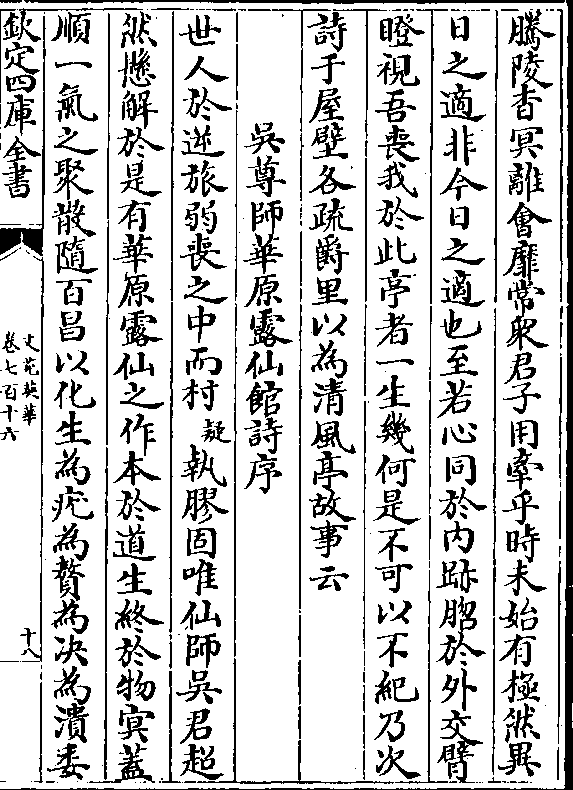 騰陵杳冥離會靡常眾君子用牽乎時未始有極然異
日之適非今日之適也至若心同於內跡脗於外交臂
瞪視吾喪我於此亭者一生幾何是不可以不紀乃次
詩于屋壁各疏爵里以為清風亭故事云
吳尊師華原露仙館詩序
世人於逆旅弱喪之中而村疑執膠固唯仙師吳君超
然懸解於是有華原露仙之作本於道生終於物冥蓋
順一氣之聚散隨百昌以化生為疣為贅為決為潰委
欽定四庫全書
文苑英華
卷七百十六
十八